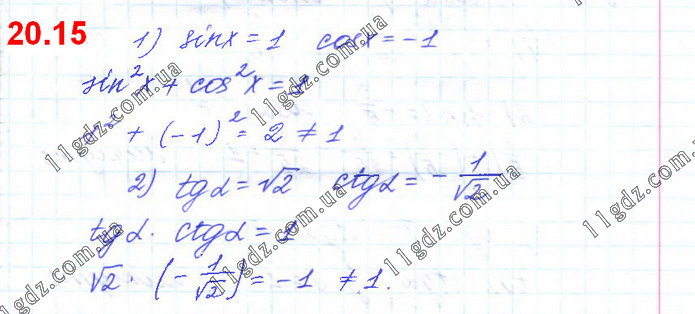 20.15
1) sinx = 1 cosx = -1
sin²x + cos²x = 1
1² + (-1)² = 2 ≠ 1
2) tgα = √2 ctgα = -1/√2
tgα · ctgα = 1
√2 · (-1/√2) = -1 ≠ 1.
11gdz.com.ua
11gdz.com.ua
11gdz.com.ua
11gdz.com.ua
11gdz.com.ua
11gdz.com.ua
11gdz.com.ua